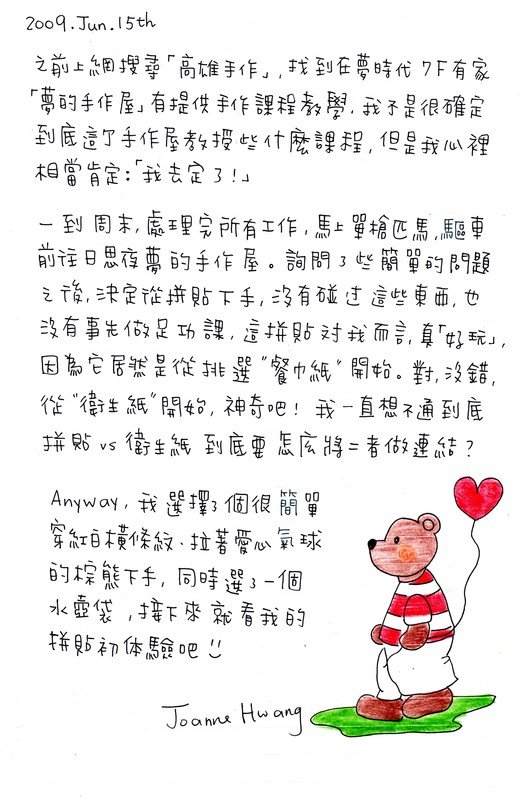 2009.Jun.15th
之前上網搜尋「高雄手作」,找到在夢時代7F有家
「夢的手作屋」有提供手作課程教學,我不是很確定
到底這了手作屋教授些什麼課程,但是我心裡
相當肯定:「我去定了!」
一到周末,處理完所有工作,馬上單槍匹馬,驅車
前往日思夜夢的手作屋。詢問了些簡單的問題
之後,決定從拼貼下手,沒有碰過這些東西,也
沒有事先做足功課,這拼貼對我而言,真「好玩」,
因為它居然是從挑選"餐巾紙"開始。對,沒錯,
從"衛生紙"開始,神奇吧!我一直想不通到底
拼貼vs衛生紙到底要怎麼將二者做連結?
Anyway,我選擇了個很簡單
穿紅白橫條紋、拉著愛心氣球
的棕熊下手,同時選了一個
水壺袋,接下來就看我的
拼貼初体驗吧!!
Joanne Hwang